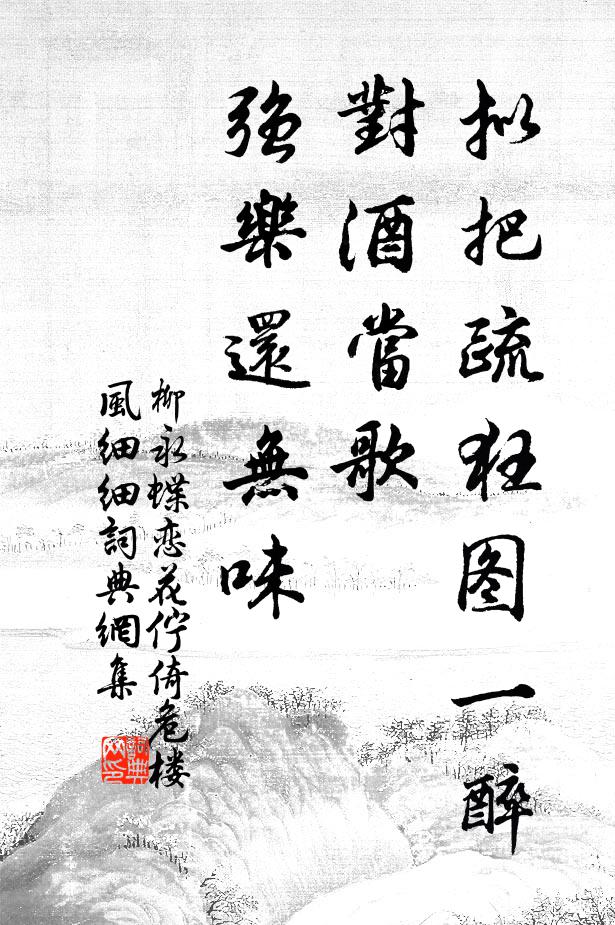 拟把疏狂图一醉
對酒當歌
強樂還無味
柳永蝶恋花佇倚危楼
風細細詞典網集
詞典網印